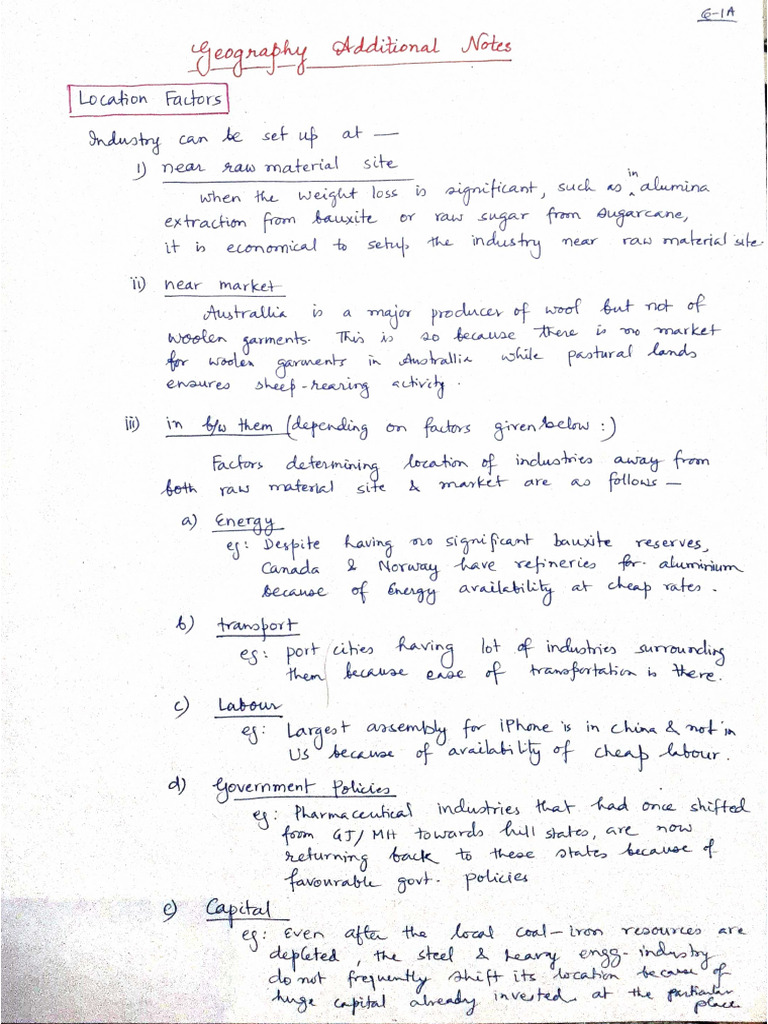 G-1A
Geography Additional Notes
Location Factors
Industry can be set up at —
i) near raw material site
when the weight loss is significant, such as in alumina
extraction from bauxite or raw sugar from sugarcane,
it is economical to setup the industry near raw material site.
ii) near market
Australlia is a major producer of wool but not of
woolen garments. This is so because there is no market
for woolen garments in Australlia while pastural lands
ensures sheep-rearing activity.
iii) in b/w them (depending on factors given below :)
Factors determining location of industries away from
both raw material site & market are as follows —
a) Energy
eg: Despite having no significant bauxite reserves,
Canada & Norway have refineries for aluminium
because of Energy availability at cheap rates.
b) transport
eg: port cities having lot of industries surrounding
them because ease of transportation is there.
c) Labour
eg: Largest assembly for iPhone is in China & not in
US because of availability of cheap labour.
d) Government Policies
eg: Pharmaceutical industries that had once shifted
from GJ/MH towards hill states, are now
returning back to these states because of
favourable govt. policies
e) Capital
eg: Even after the local coal-iron resources are
depleted, the steel & heavy engg. industry
do not frequently shift its location because of
huge capital already invested at the particular
place.